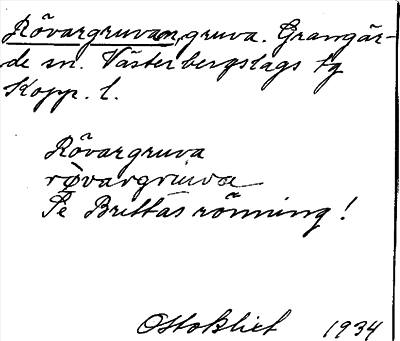 Rövargruvan, gruva. Grangär-
de sn. Västerbergslags tg
Kopp. l.
Rövargruva
rövargruva
Se Brittas rönning!
Otto Blixt 1934